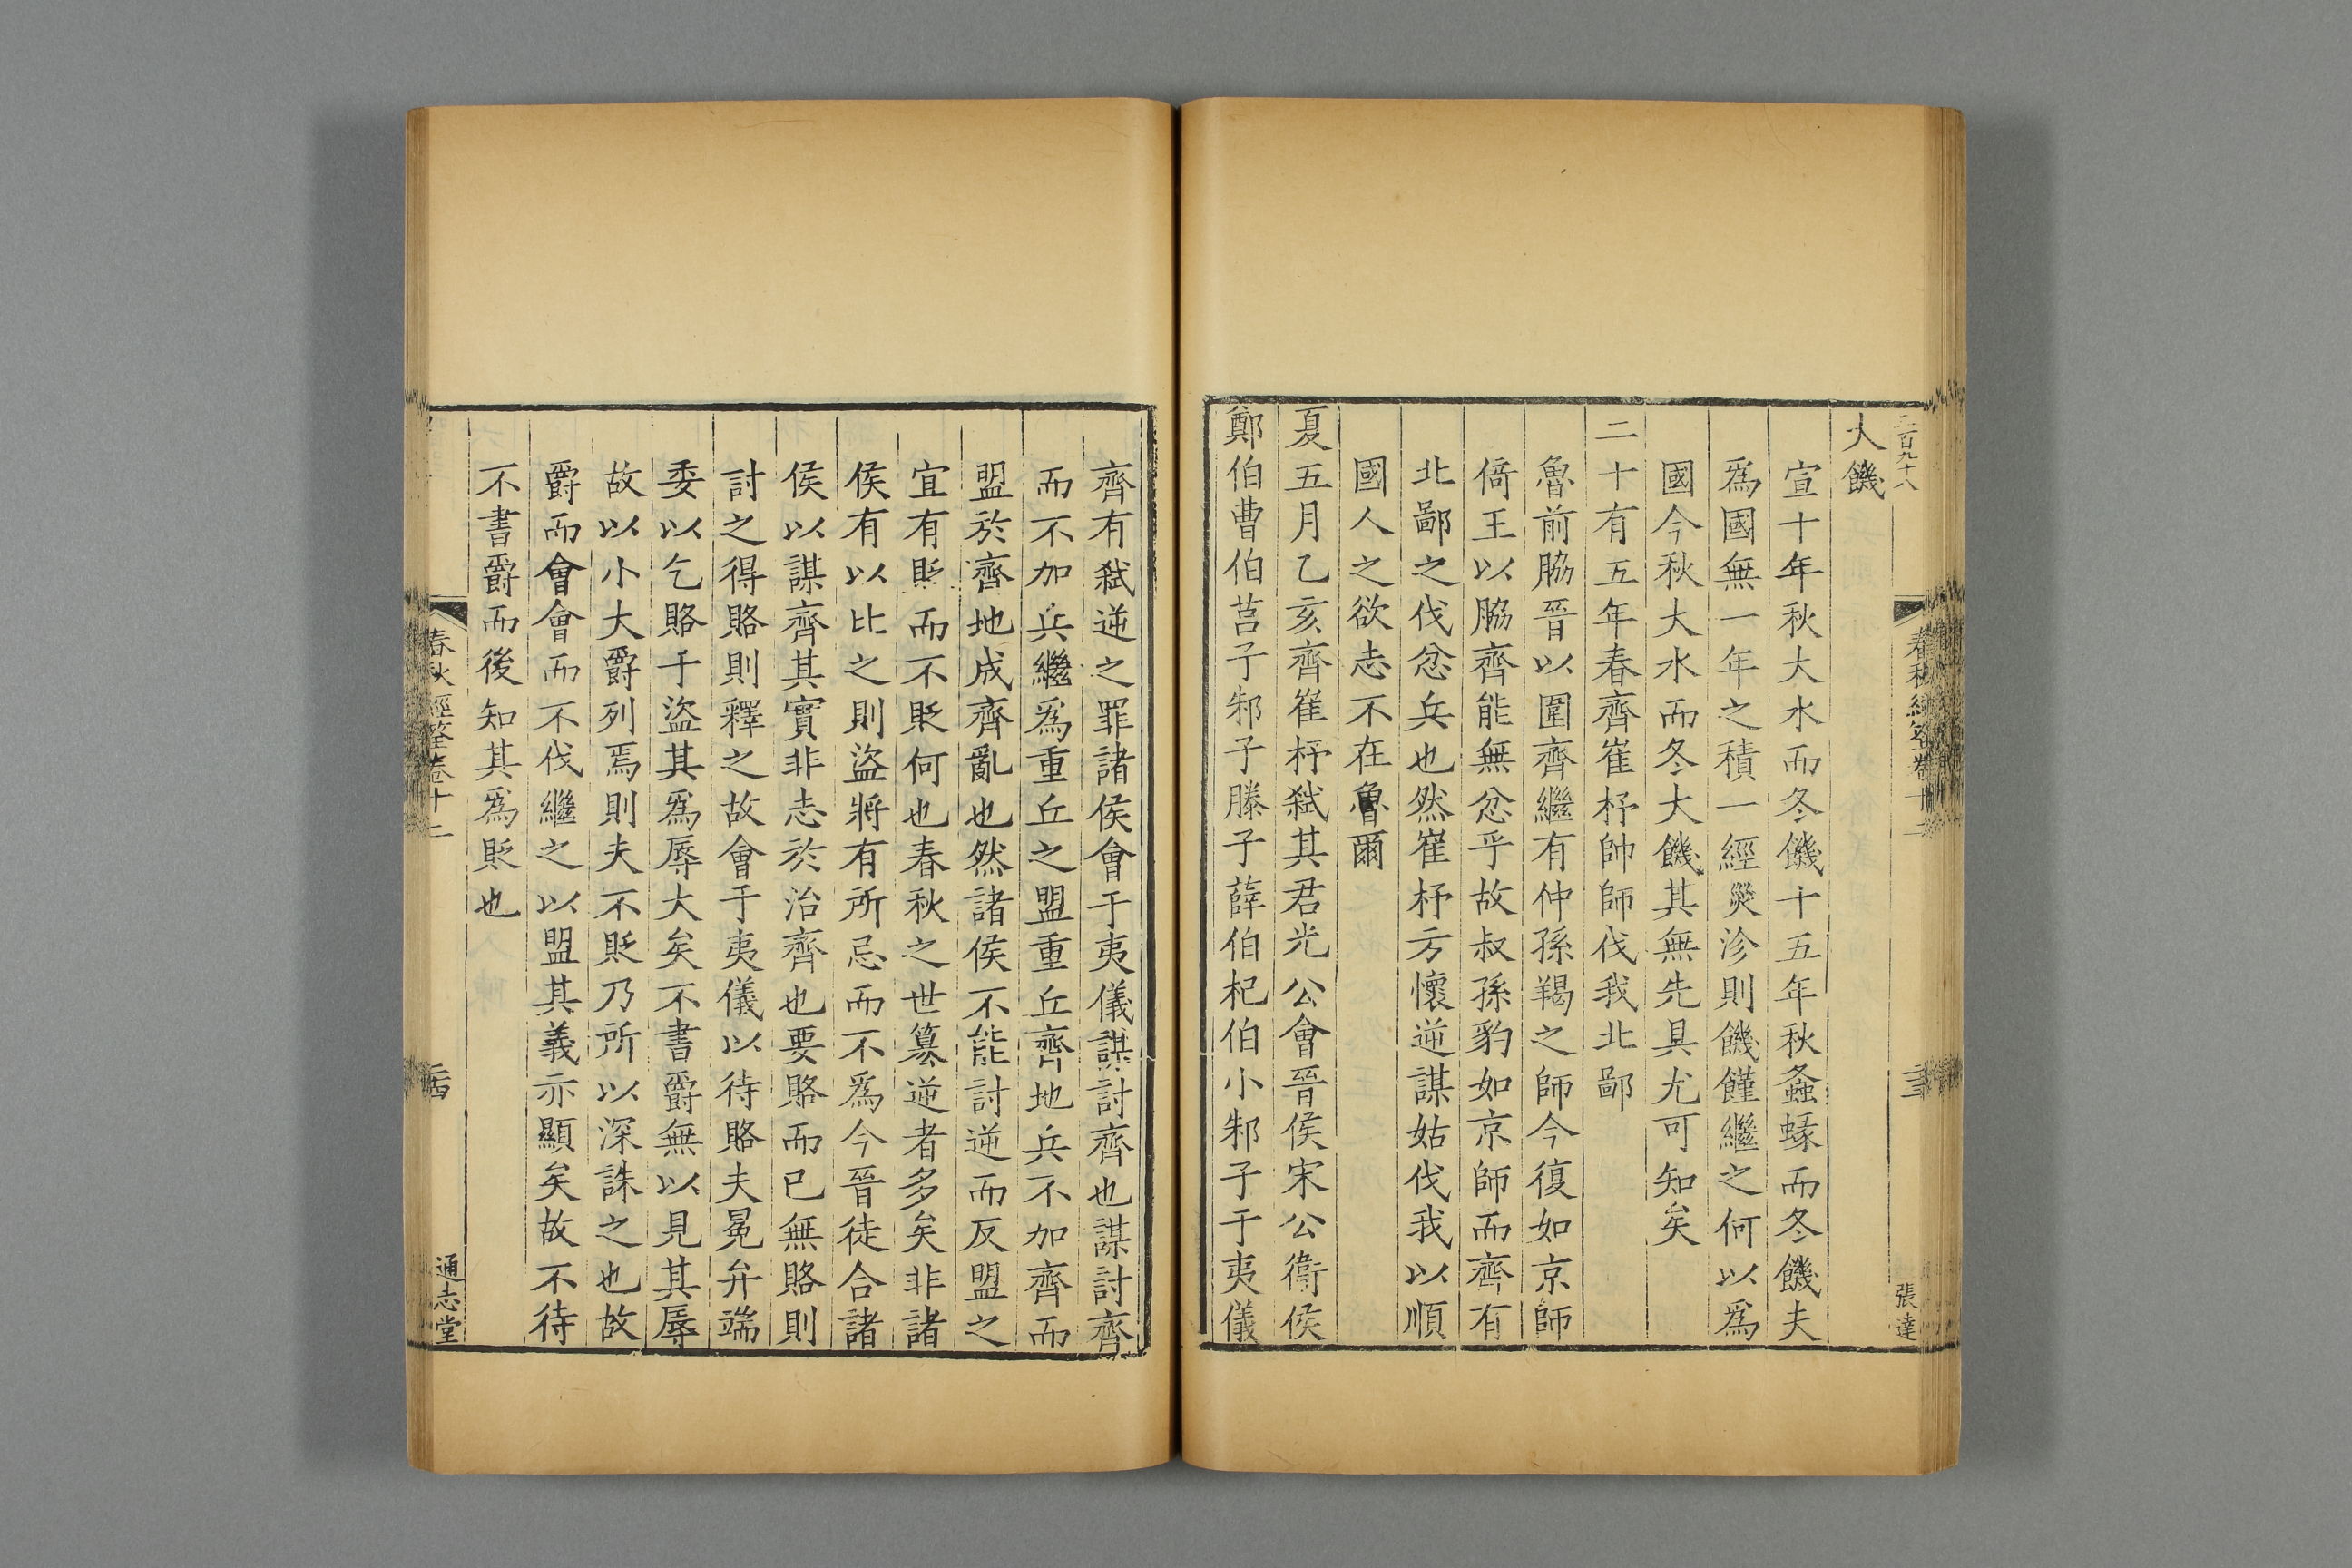 大饑
宣十年秋大水而冬饑十五年秋螽蝝而冬饑夫
爲國無一年之積一經災沴則饑饉繼之何以爲
國今秋大水而冬大饑其無先具尤可知矣
二十有五年春齊崔杼帥師伐我北鄙
魯前脇晉以圍齊繼有仲孫羯之師今復如京師
倚王以脇齊能無忿乎故叔孫豹如京師而齊有
北鄙之伐忿兵也然崔杼方懷逆謀姑伐我以順
國人之欲志不在魯爾
夏五月乙亥齊崔杼弑其君光公會晉侯宋公衛侯
鄭伯曹伯莒子邾子滕子薛伯杞伯小邾子于夷儀
張達
齊有弑逆之罪諸侯會于夷儀謀討齊也謀討齊
而不加兵繼爲重丘之盟重丘齊地兵不加齊而
盟於齊地成齊亂也然諸侯不能討逆而反盟之
宜有貶而不貶何也春秋之世簒逆者多矣非諸
侯有以比之則盜將有所忌而不爲今晉徒合諸
侯以謀齊其實非志於治齊也要賂而已無賂則
討之得賂則釋之故會于夷儀以待賂夫冕弁端
委以乞賂于盜其爲辱大矣不書爵無以見其辱
故以小大爵列焉則夫不貶乃所以深誅之也故
爵而會會而不伐繼之以盟其義亦顯矣故不待
不書爵而後知其爲貶也
春秋經筌卷十二
通志堂